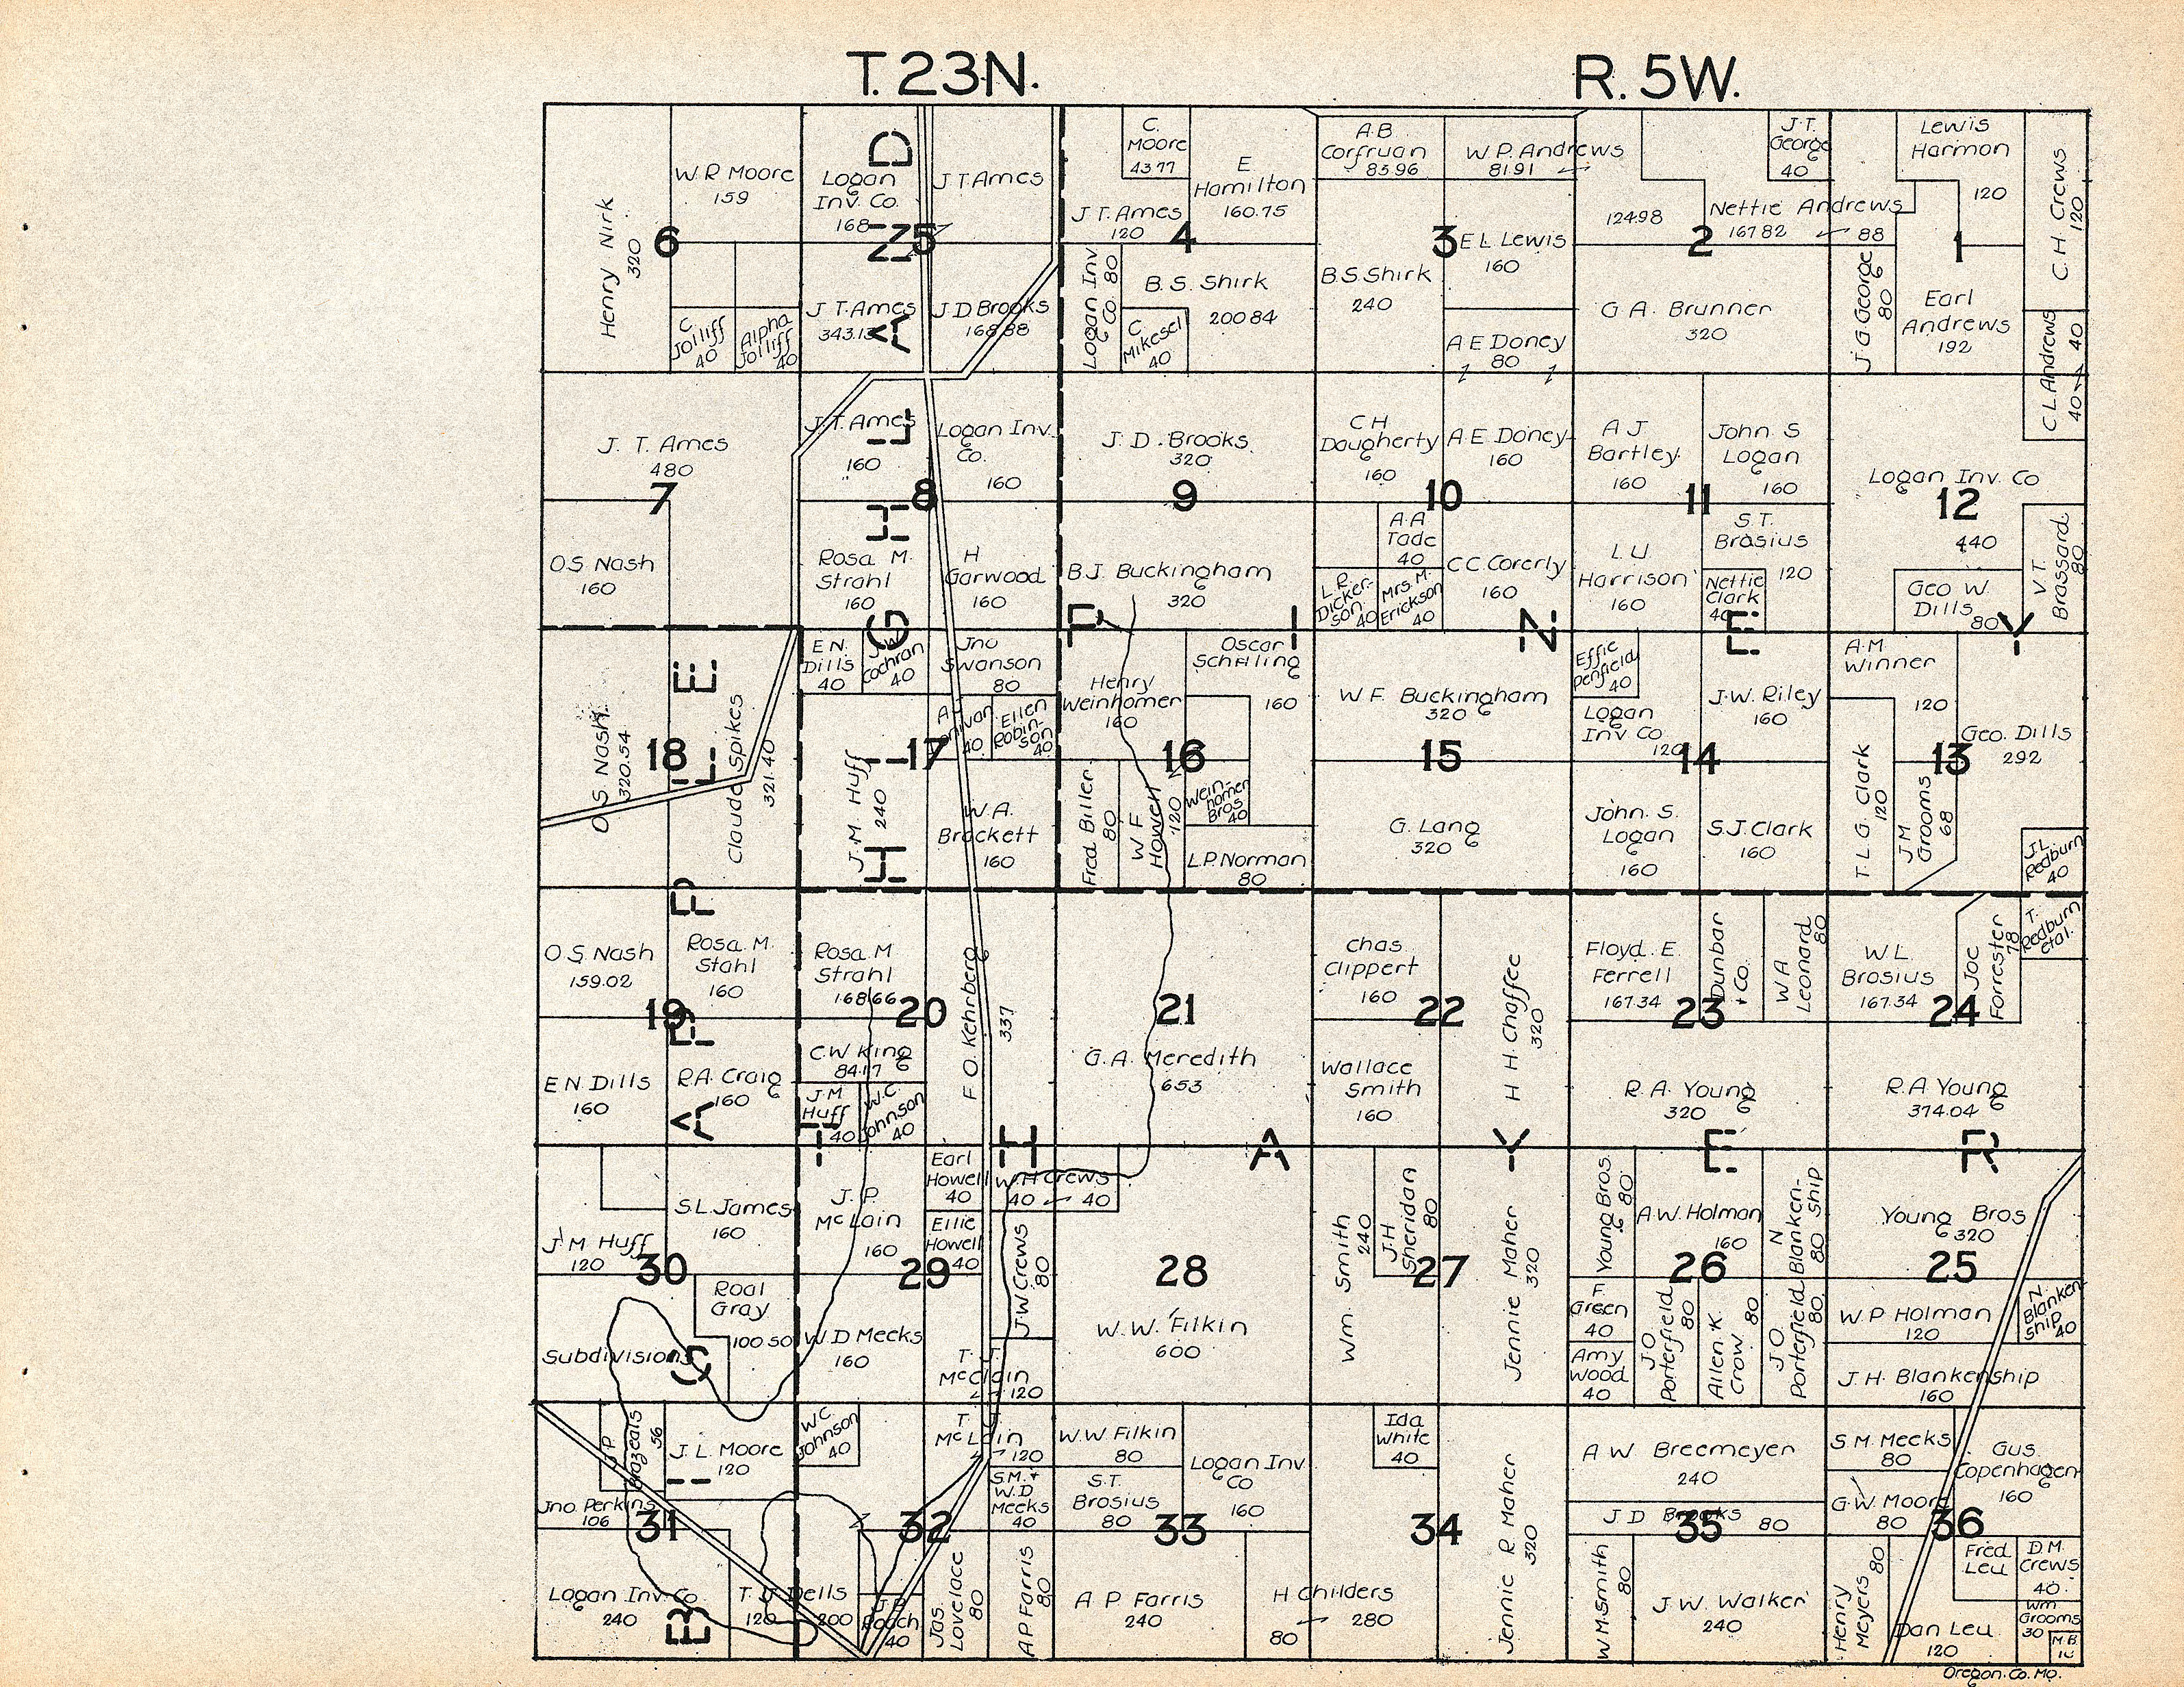 T. 23N.
R. 5W.
Henry Nirk
320
W. P. Moore
159
6
C
Jolliff
40
Alpha
Jolliff
40
Logan
Inv. Co.
168
5
J T Ames
J T. Ames
343.13
J D Brooks
168 88
C.
Moore
43 77
E
Hamilton
160.75
J T. Ames
120
4
Logan Inv
Co 80
B. S. Shirk
200 84
C
Mikesel
40
A B
Corfruan
83 96
W P. Andrews
81 91
3
E L Lewis
160
B. S Shirk
240
A E Doney
80
J. T.
George
40
124 98
Nettie Andrews
167 82
88
2
G A. Brunner
320
Lewis
Harmon
120
C. H Crews
120
1
J G George
80
Earl
Andrews
192
C L Andrews
40
40
J. T. Ames
480
7
O S. Nash
160
J. T. Ames
160
Logan Inv.
Co.
160
8
Rosa M.
Strahl
160
H
Garwood
160
J. D. Brooks
320
9
B.J. Buckingham
320
C H
Daugherty
160
A E Doney
160
10
A. A
Tade
40
L. R.
Dicker-
son 40
Mrs. M.
Erickson
40
C C Corerly
160
A J
Bartley
160
John. S
Logan
160
11
L. U
Harrison
160
S. T.
Brosius
120
Nettie
Clark
40
Logan Inv. Co
12
440
Geo W.
Dills
80
V T.
Brassard
80
O S Nash
320.54
18
Claude Spikes
321.40
E N.
Dills
40
J. W.
Cochran
40
Jno
Swanson
80
Ellen
Robin-
son
40
17
J. M. Huff
240
W. A.
Brackett
160
Henry
Weinhomer
160
Oscar
Schilling
160
16
Fred Biller
80
W F
Howell
120
Wein-
homer
Bros
40
L. P. Norman
80
W F. Buckingham
320
15
G. Lang
320
Effie
Penfield
40
Logan
Inv Co
120
J. W. Riley
160
14
John. S.
Logan
160
S. J. Clark
160
A. M.
Winner
120
Geo. Dills
292
13
T. L. G. Clark
120
J M
Grooms
68
J. L.
Redburn
40
O. S. Nash
159.02
Rosa. M.
Stahl
160
19
E N Dills
160
R.A. Craig
160
Rosa. M
Strahl
168 66
20
F O. Kehrberg
337
C. W King
84.17
J. M
Huff
40
W. C
Johnson
40
21
G. A. Meredith
653
Chas
Clippert
160
22
H H. Chaffee
320
Wallace
Smith
160
Floyd. E
Ferrell
167.34
Dunbar
+ Co.
W A
Leonard
80
23
R. A. Young
320
W. L.
Brosius
167.34
Joc
Forrester
78
T.
Redburn
etal.
24
R. A Young
374.04
S. L. James
160
J M Huff
120
30
Roal
Gray
100 50
Subdivisions
J. P.
McLain
160
Earl
Howell
40
Ellie
Howell
40
29
W. D Meeks
160
T. J.
McClain
120
W. H Crews
40 40
J. W Crews
80
28
W. W. Filkin
600
Wm. Smith
240
J. H
Sheridan
80
27
Jennie Maher
320
Young Bros.
80
A. W. Holman
160
N
Blanken-
ship
80
26
F.
Green
40
Amy
Wood
40
J O
Porterfield
80
Allen. K
Crow
80
J O
Porterfield
80
Young Bros
320
25
W. P Holman
120
N.
Blanken
ship
40
J. H. Blankenship
160
J. P.
Brazeals
56
J. L Moore
120
Jno. Perkins
106
31
Logan Inv. Co.
240
T. J Dells
120
200
W C
Johnson
40
T. J
McLain
120
S. M. +
W. D
Meeks
40
32
J. P.
Roach
40
Jas.
Lovelace
80
A P Farris
80
W. W Filkin
80
S. T.
Brosius
80
Logan Inv
Co
160
33
A P Farris
240
H Childers
80
280
Ida
White
40
34
Jennie R Maher
320
A W Breemeyer
240
J D Brooks
80
35
W M Smith
80
J. W. Walker
240
S. M. Meeks
80
Gus
Copenhagen
160
G. W. Moore
80
36
Henry
Meyers
80
Fred
Leu
D. M.
Crews
40
Dan Leu
120
Wm
Grooms
30
M. B
HIGHLAND
PINEY
ELEVEN
THAYER
Oregon. Co. Mo.